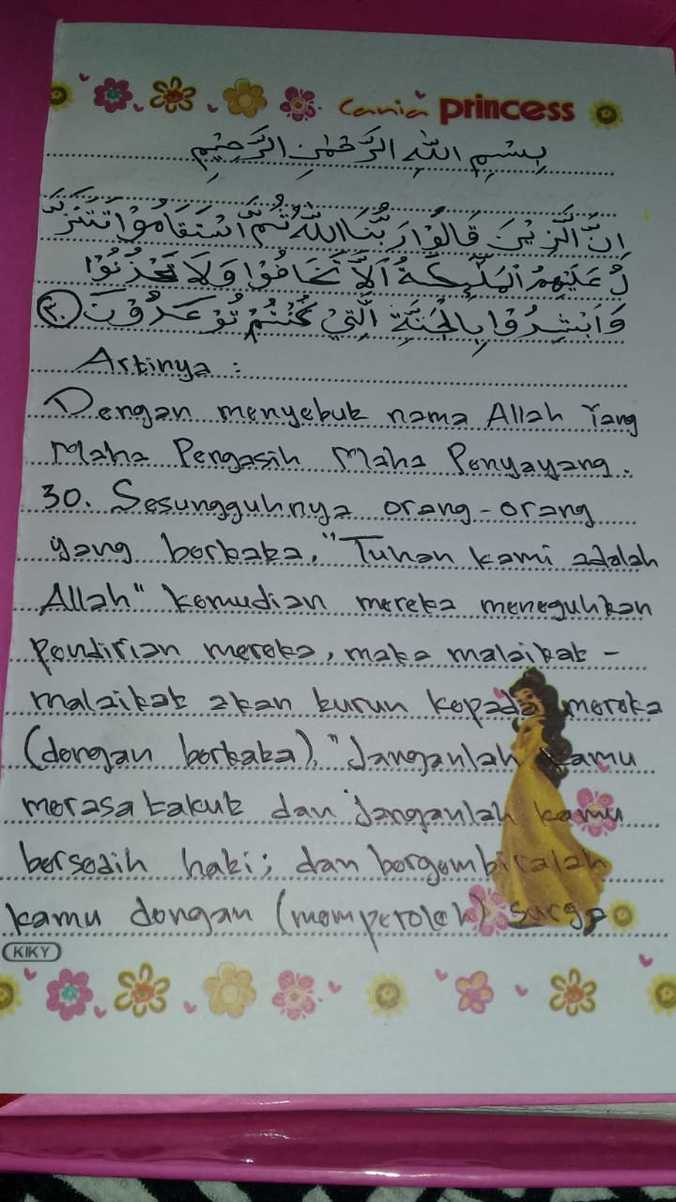 Cania princess
بِسْمِ اللهِ الرَّحْمٰنِ الرَّحِيْمِ
اِنَّ الَّذِيْنَ قَالُوْا رَبُّنَا اللّٰهُ ثُمَّ اسْتَقَامُوْا تَتَنَزَّ
لُ عَلَيْهِمُ الْمَلٰٓئِكَةُ اَلَّا تَخَافُوْا وَلَا تَحْزَنُوْا
وَاَبْشِرُوْا بِالْجَنَّةِ الَّتِيْ كُنْتُمْ تُوْعَدُوْنَ (٣٠)
Artinya :
Dengan menyebut nama Allah Yang
Maha Pengasih Maha Penyayang.
30. Sesungguhnya orang-orang
yang berkata, "Tuhan kami adalah
Allah" kemudian mereka meneguhkan
Pendirian mereka, maka malaikat-
malaikat akan turun kepada mereka
(dengan berkata), "Janganlah kamu
merasa takut dan janganlah kamu
bersedih hati; dan bergembiralah
kamu dengan (memperoleh) surga
KIKY